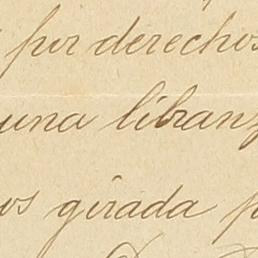 por derechos
una libranz
os girada p